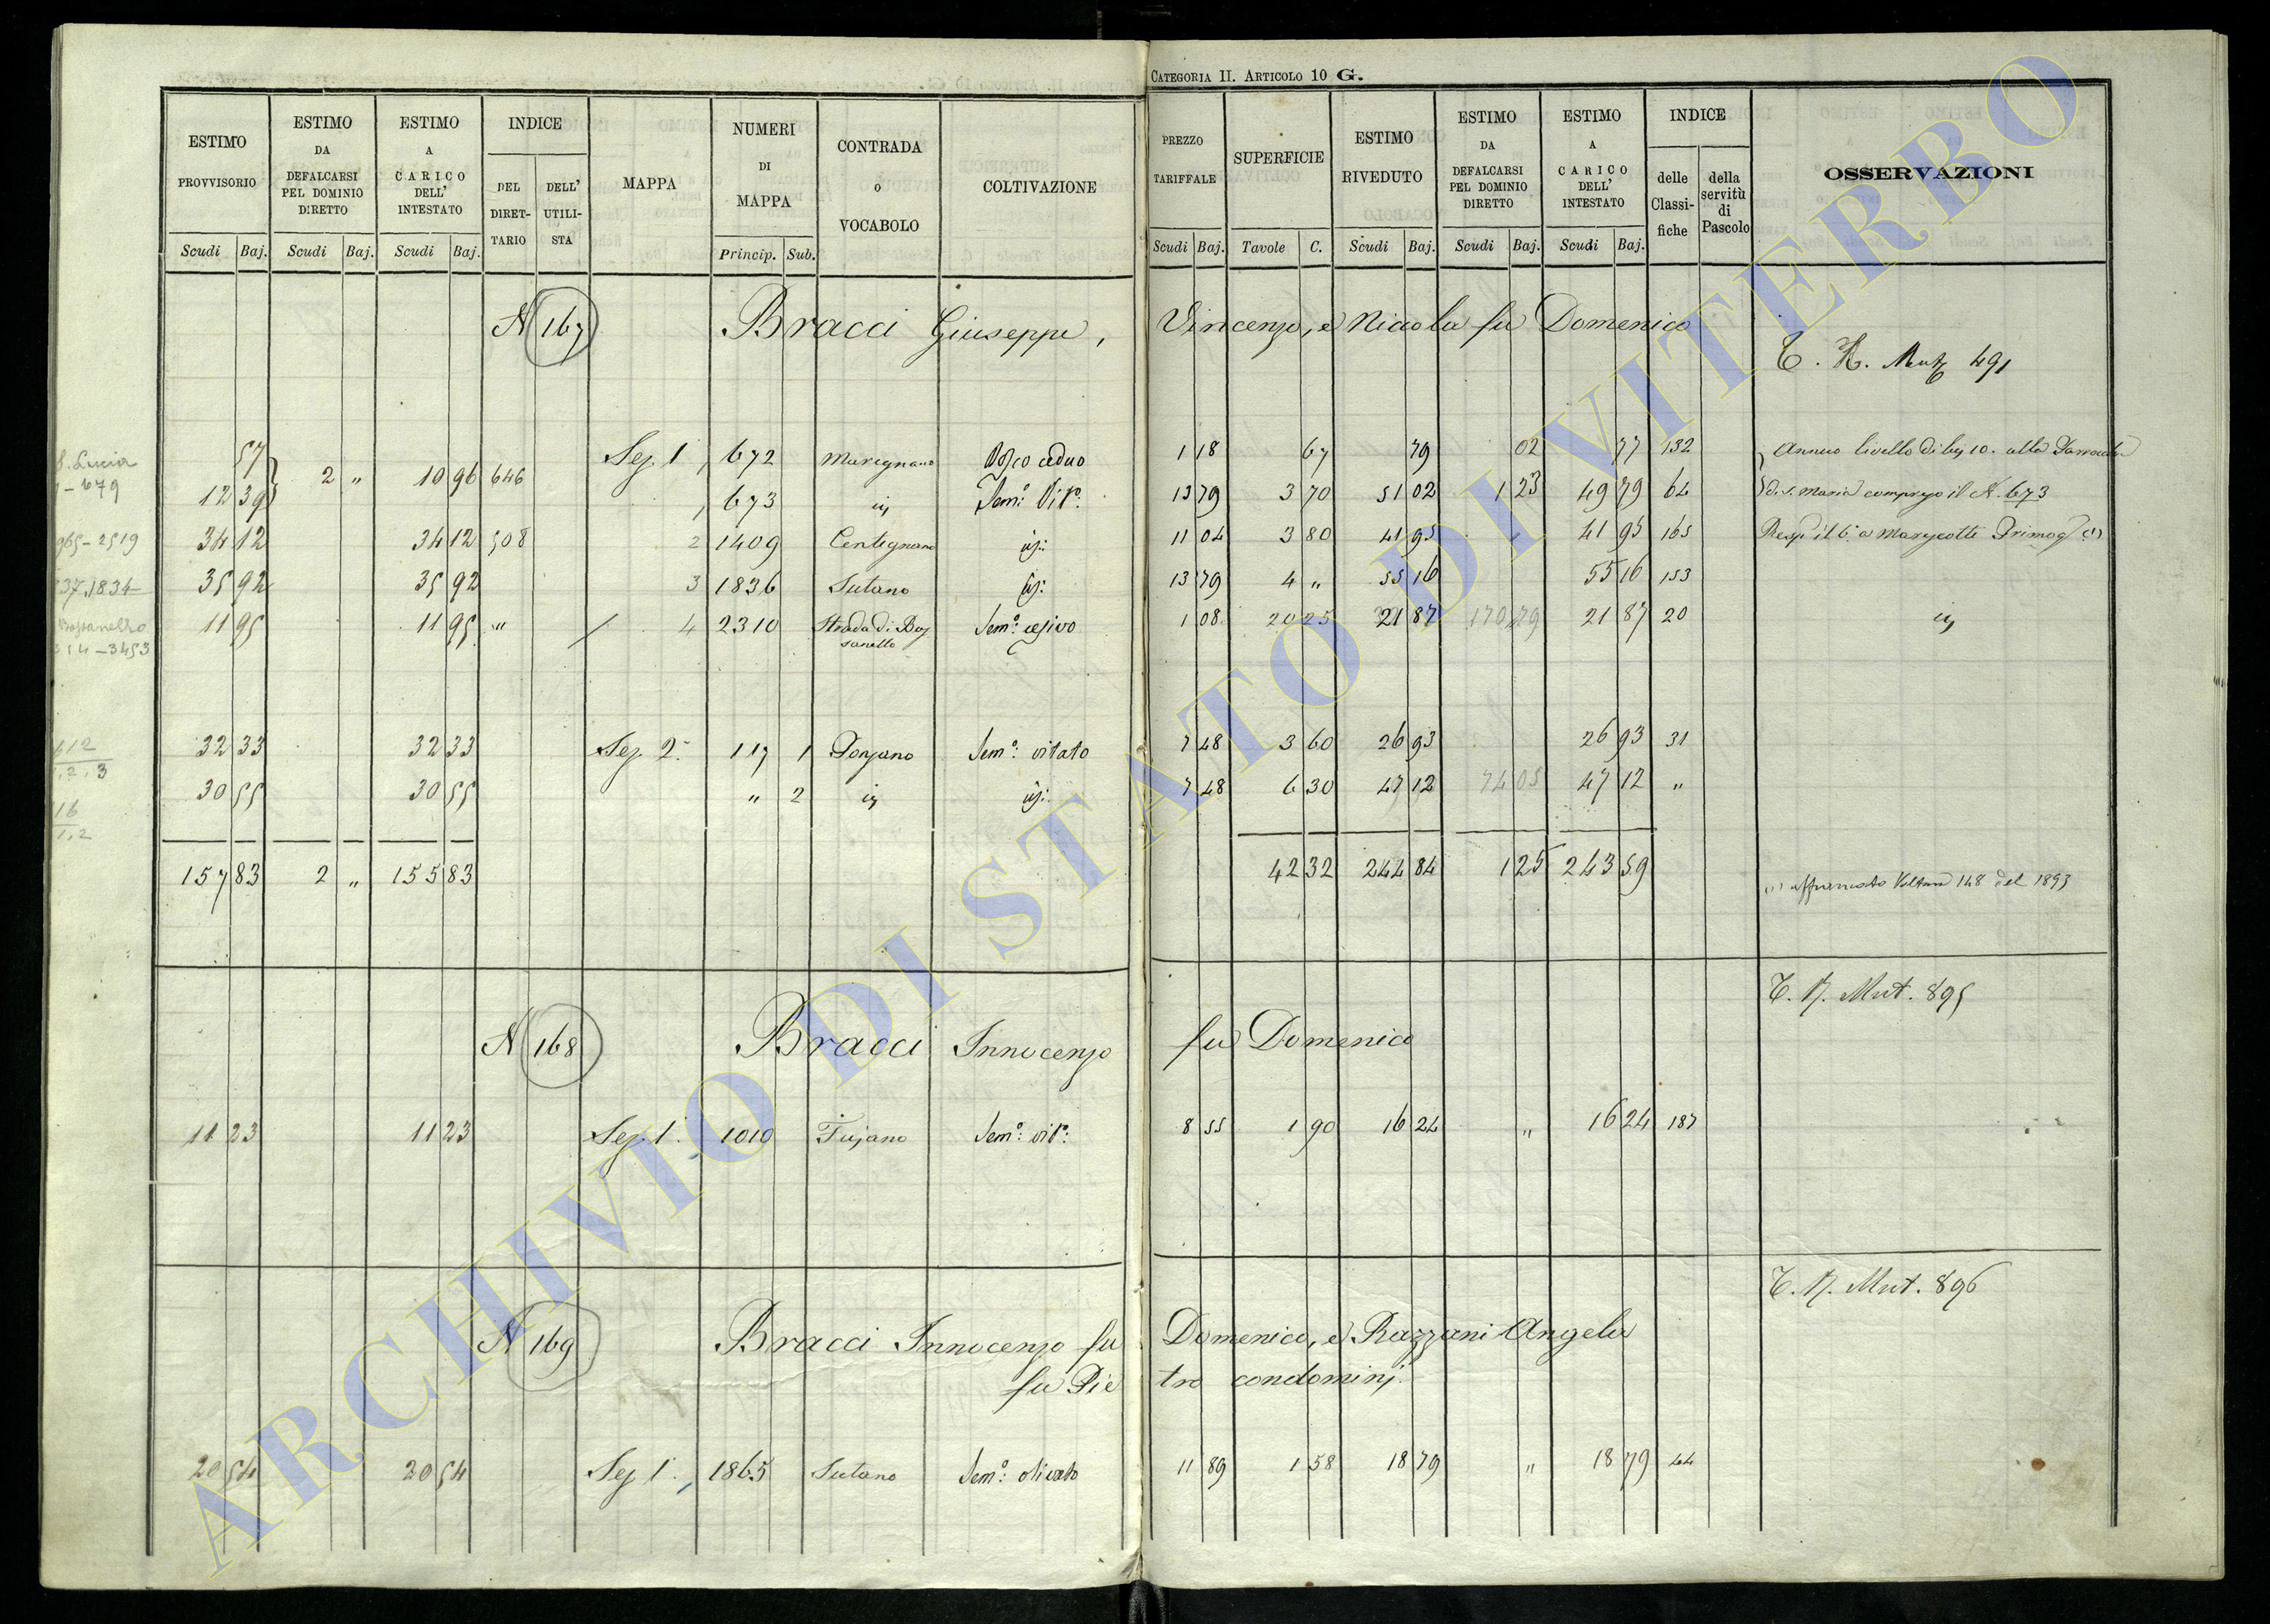 CATEGORIA II. ARTICOLO 10 G.
ESTIMO PROVVISORIO | ESTIMO DA DEFALCARSI PEL DOMINIO DIRETTO | ESTIMO A CARICO DELL' INTESTATO | INDICE DEL DIRETTARIO | DELL' UTILISTA | MAPPA | NUMERI DI MAPPA | CONTRADA o VOCABOLO | COLTIVAZIONE | PREZZO TARIFFALE | SUPERFICIE | ESTIMO RIVEDUTO | ESTIMO DA DEFALCARSI PEL DOMINIO DIRETTO | ESTIMO A CARICO DELL' INTESTATO | INDICE delle Classifiche | della servitù di Pascolo | OSSERVAZIONI
Scudi Baj. | Scudi Baj. | Scudi Baj. | Princip. Sub. | Scudi Baj. | Tavole C. | Scudi Baj. | Scudi Baj. | Scudi Baj.
N 167 Bracci Giuseppe, Vincenzo, e Nicola fu Domenico
491
S. Lucia
679
57 | Sez. 1 | 672 | Marignano | Bosco ceduo | 1 18 | 67 | 79 | 02 | 77 | 132 | Annuo livello di baj 10. alla
12 39 | 2 „ | 10 96 | 646 | 673 | id | Sem.o Vit.o | 13 79 | 3 70 | 51 02 | 1 23 | 49 79 | 64 | di S. Maria compreso il N. 673
965-2519 | 34 12 | 34 12 | 508 | 2 | 1409 | Centignano | id: | 11 04 | 3 80 | 41 95 | 41 95 | 165
37.1834 | 35 92 | 35 92 | 3 | 1836 | Sutano | id: | 13 79 | 4 „ | 55 16 | 55 16 | 153
Bassanello
3453 | 11 95 | 11 95 | „ | 4 | 2310 | Strada di Bassanello | Sem.o | 1 08 | 20 25 | 21 87 | 170 79 | 21 87 | 20 | id
32 33 | 32 33 | Sez. 2. | 117 1 | Ponzano | Sem.o: vitato | 7 48 | 3 60 | 26 93 | 26 93 | 31
30 55 | 30 55 | „ 2 | id | id: | 7 48 | 6 30 | 47 12 | 74 05 | 47 12 | „
157 83 | 2 „ | 155 83 | 42 32 | 244 84 | 1 25 | 243 59 | (1) affrancato Voltura 148 del 1893
T. N. Mut. 895
N 168 Bracci Innocenzo fu Domenico
11 23 | 11 23 | Sez. 1. | 1010 | Fujano | Sem.o: vit.o: | 8 55 | 1 90 | 16 24 | „ | 16 24 | 187
T. N. Mut. 896
N 169 Bracci Innocenzo fu Domenico, e Razzani Angela
fu Pietro condominj.
20 54 | 20 54 | Sez 1. | 1865 | Sutano | Sem.o: olivato | 11 89 | 1 58 | 18 79 | „ | 18 79 | 44
ARCHIVIO DI STATO DI VITERBO